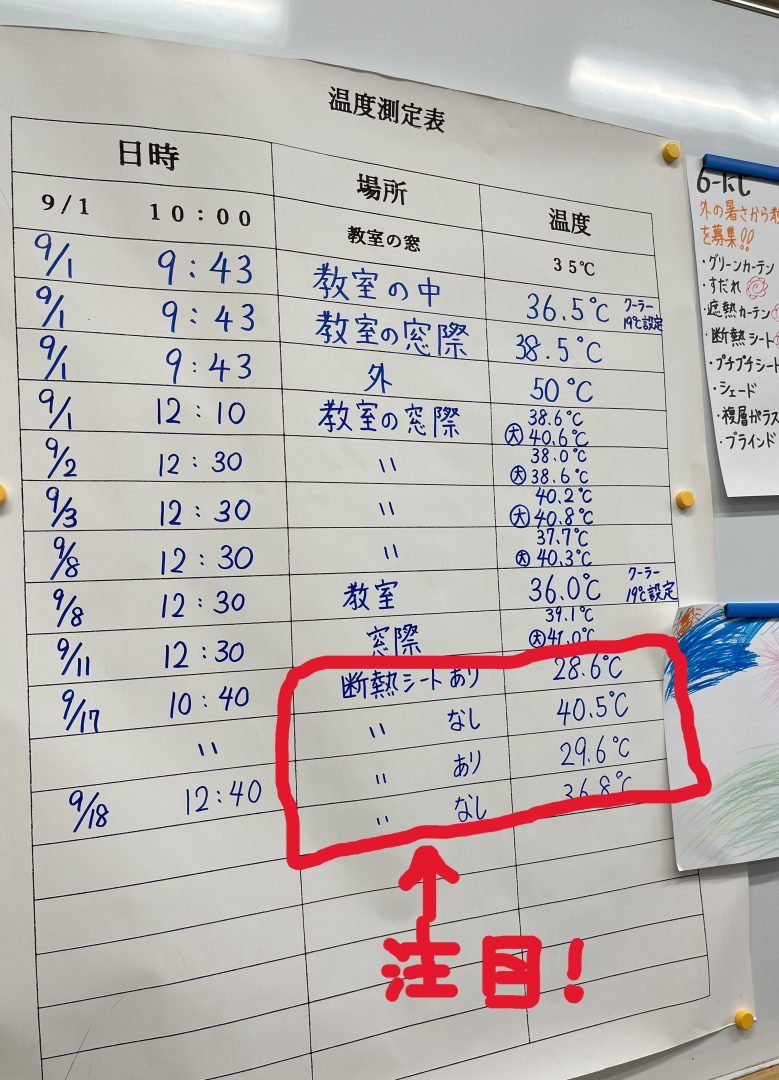 温度測定表
日時 場所 温度
9/1 10:00 教室の窓 35℃
9/1 9:43 教室の中 36.5℃ クーラー 19℃設定
9/1 9:43 教室の窓際 38.5℃
9/1 9:43 外 50℃
9/1 12:10 教室の窓際 38.6℃ 大 40.6℃
9/2 12:30 〃 38.0℃ 大 38.6℃
9/3 12:30 〃 40.2℃ 大 40.8℃
9/8 12:30 〃 37.7℃ 大 40.3℃
9/8 12:30 教室 36.0℃ クーラー 19℃設定
9/11 12:30 窓際 39.1℃ 大 41.0℃
9/17 10:40 断熱シート あり 28.6℃
〃 〃 なし 40.5℃
9/18 12:40 〃 あり 29.6℃
〃 なし 36.8℃
注目!
6-にじ
外の暑さから
を募集!!
・グリーンカーテン
・すだれ
・遮熱カーテン
・断熱シート
・プチプチシート
・シェード
・複層ガラス
・ブラインド